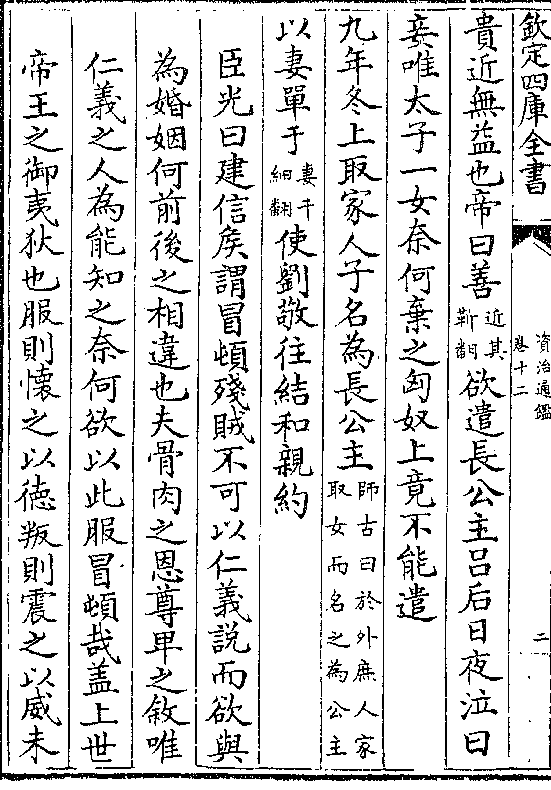 欽定四庫全書
資治通鑑
卷十二
二
貴近無益也帝曰善近其靳翻欲遣長公主呂后日夜泣曰
妾唯太子一女奈何棄之匈奴上竟不能遣
九年冬上取家人子名為長公主師古曰於外庶人家取女而名之為公主
以妻單于妻千細翻使劉敬往結和親約
臣光曰建信侯謂冒頓殘賊不可以仁義說而欲與
為婚姻何前後之相違也夫骨肉之恩尊卑之敘唯
仁義之人為能知之奈何欲以此服冒頓哉盖上世
帝王之御夷狄也服則懷之以德叛則震之以威未